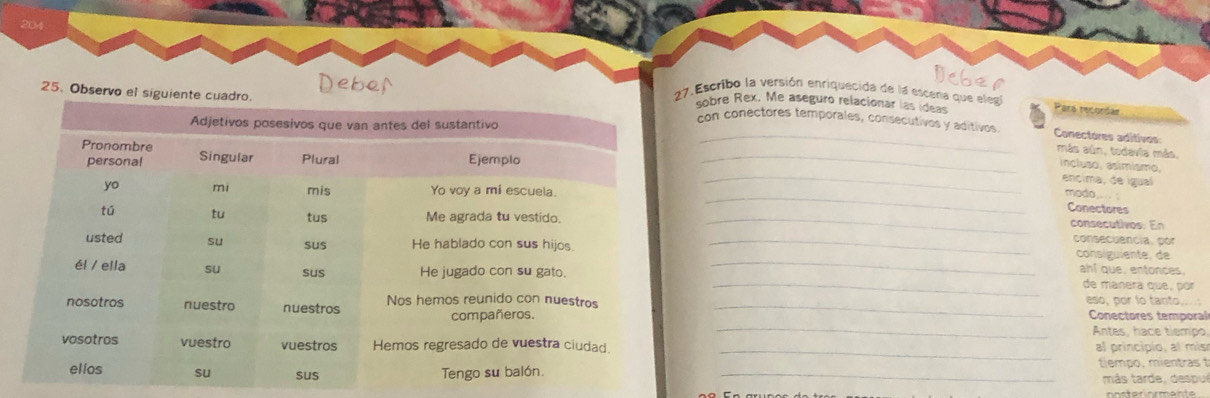 204
Deber
25. Observo el siguiente cuadro.
Adjetivos posesivos que van antes del sustantivo
Pronombre personal Singular Plural Ejemplo
yo mi mis Yo voy a mi escuela.
tú tu tus Me agrada tu vestido.
usted su sus He hablado con sus hijos.
él / ella su sus He jugado con su gato.
nosotros nuestro nuestros Nos hemos reunido con nuestros
compañeros.
vosotros vuestro vuestros Hemos regresado de vuestra ciudad.
ellos su sus Tengo su balón.
Deber
27. Escribo la versión enriquecida de la escena que elegí
sobre Rex. Me aseguro relacionar las ideas
con conectores temporales, consecutivos y aditivos.
Para recordar
Conectores aditivos:
más aún, todavía más,
incluso, asimismo,
encima, de igual
modo,... ;
Conectores
consecutivos: En
consecuencia, por
consiguiente, de
ahí que, entonces,
de manera que, por
eso, por lo tanto,...;
Conectores temporal
Antes, hace tiempo,
al principio, al mis
tiempo, mientras t
más tarde, despué
posteriormente